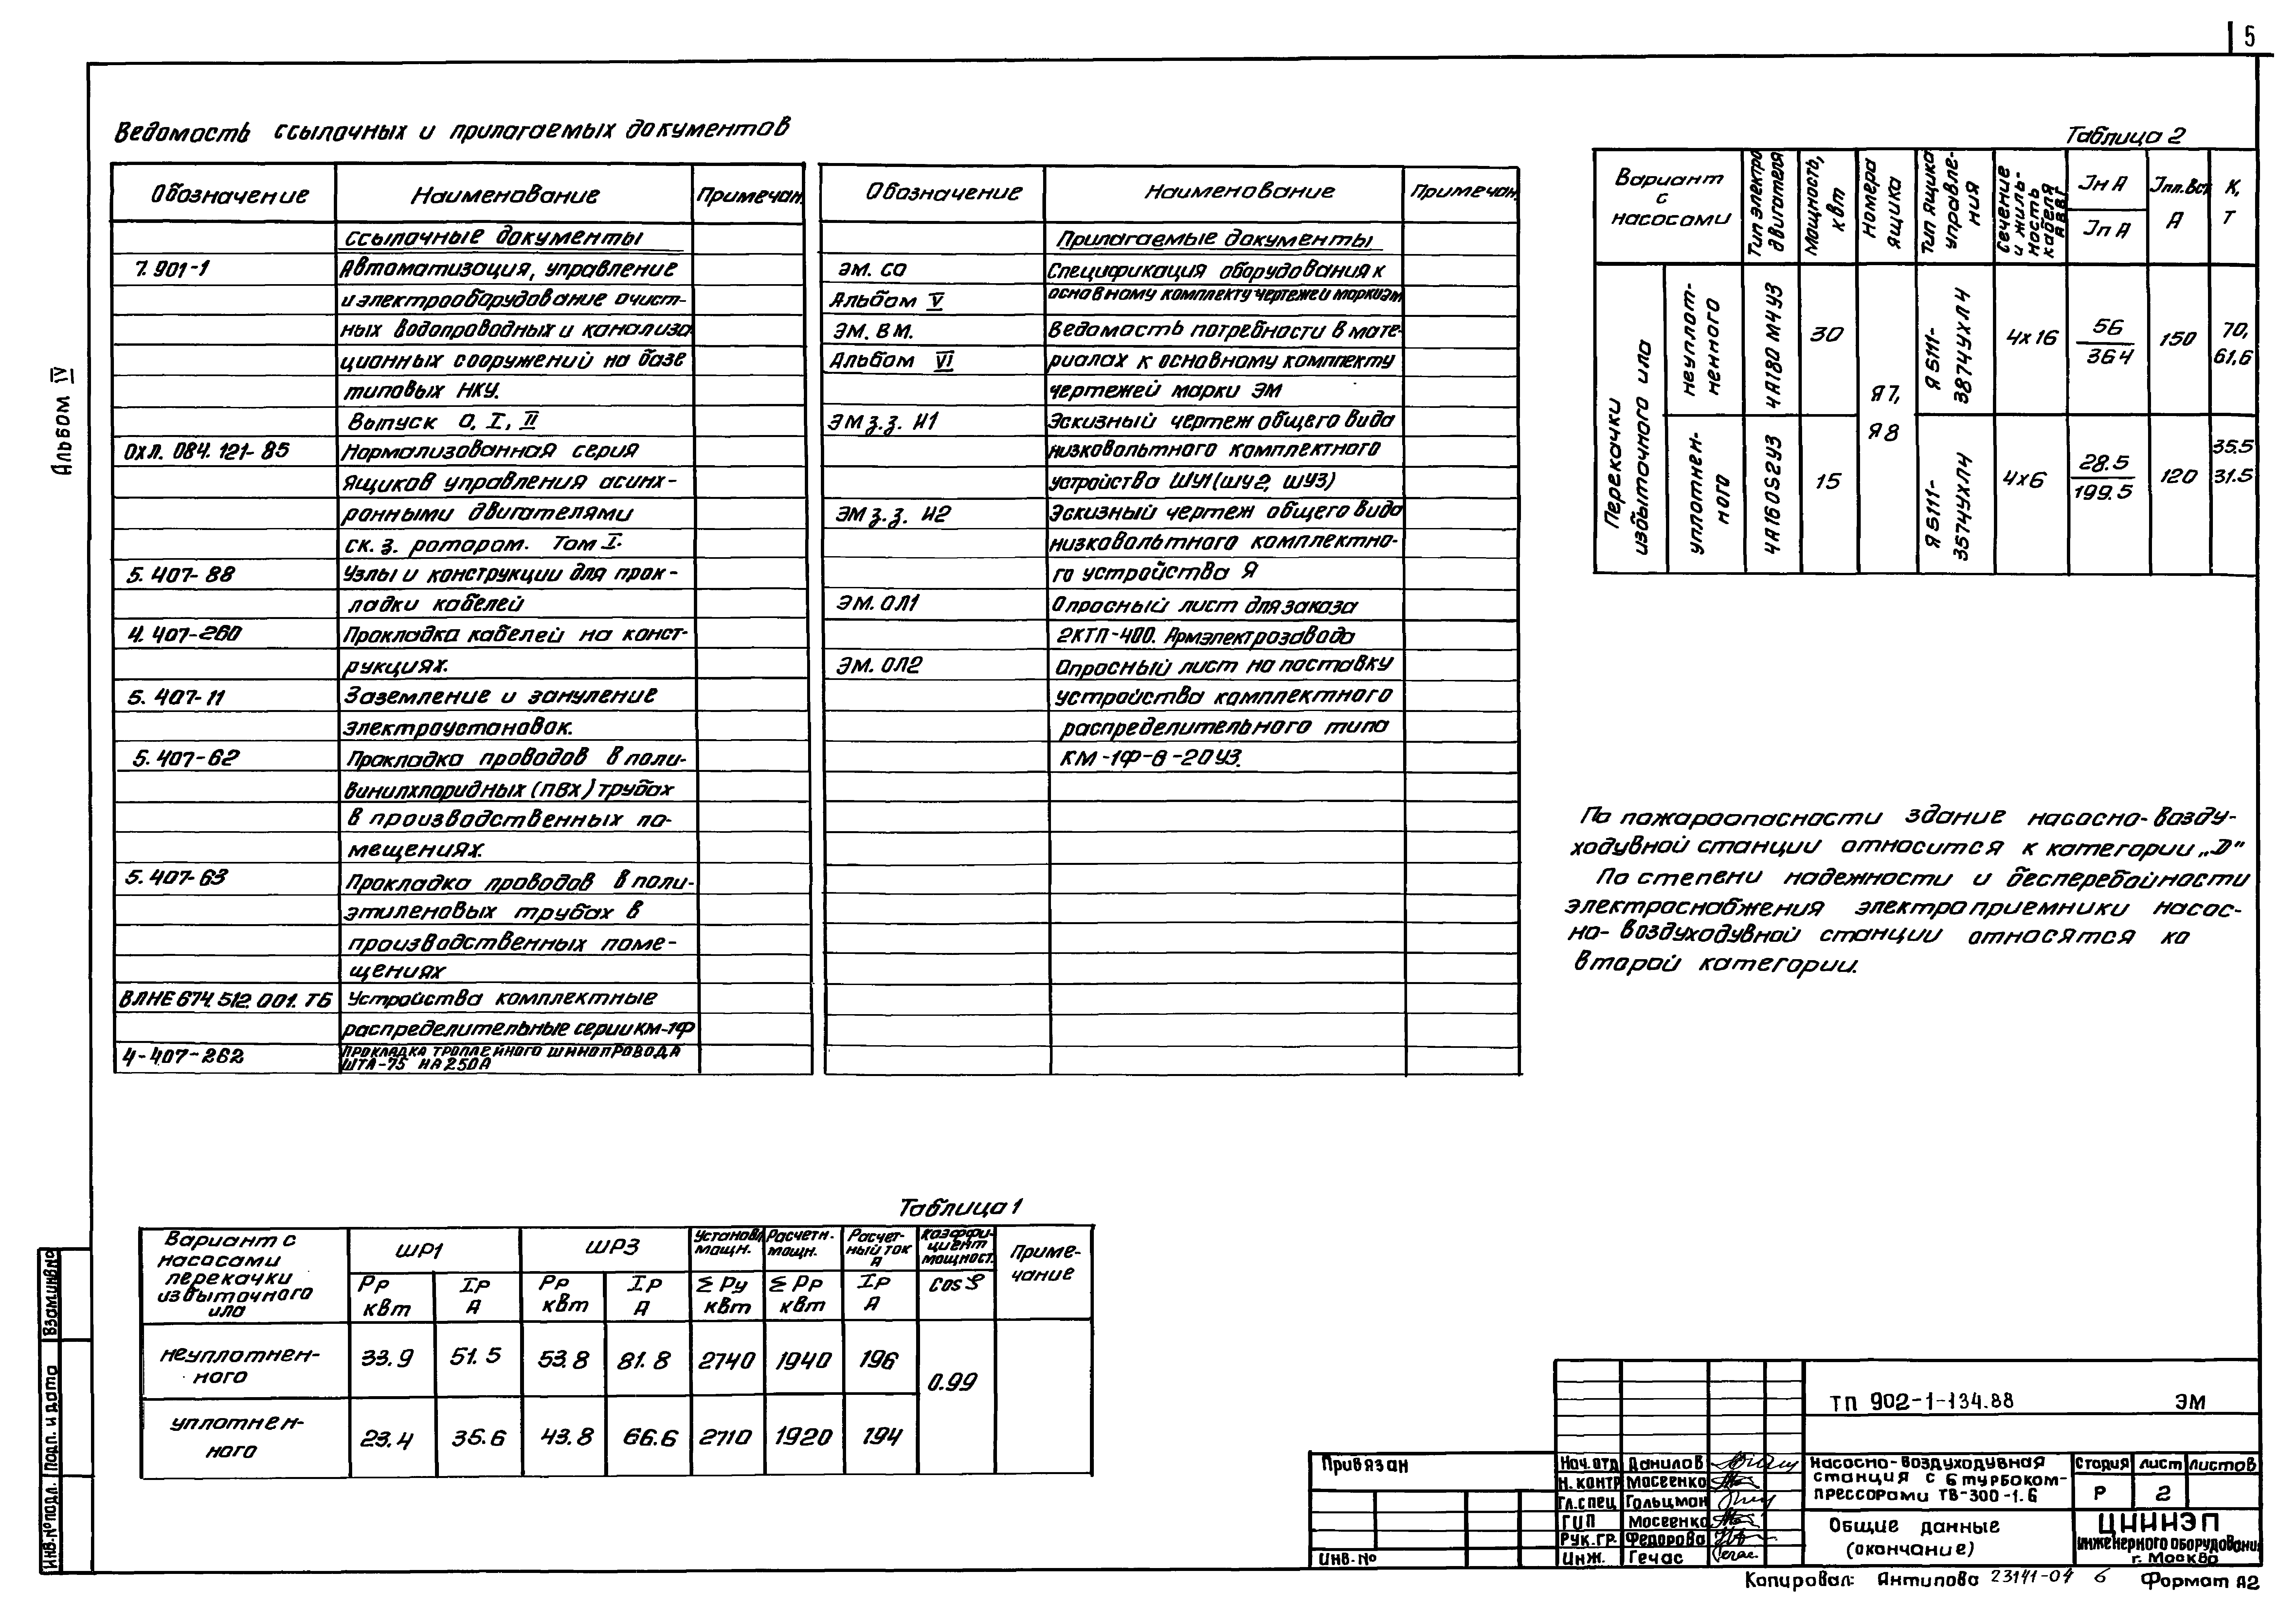 5
Альбом IV
Ведомость ссылочных и прилагаемых документов
Обозначение Наименование Примечан.
Ссылочные документы
7.901-1 Автоматизация, управление
и электрооборудование очист-
ных водопроводных и канализа
ционных сооружений на базе
типовых НКУ.
Выпуск 0, I, II
ОХЛ. 084. 121-85 Нормализованная серия
ящиков управления асинх-
ронными двигателями
с к. з. ротором. Том I.
5. 407-88 Узлы и конструкции для прок-
ладки кабелей
4. 407-260 Прокладка кабелей на конст-
рукциях.
5. 407-11 Заземление и зануление
электроустановок.
5. 407-62 Прокладка проводов в поли-
винилхлоридных (ПВХ) трубах
в производственных по-
мещениях.
5. 407-63 Прокладка проводов в поли-
этиленовых трубах в
производственных поме-
щениях
ВЛНЕ 674. 512. 001. ТБ Устройства комплектные
распределительные серии КМ-1Ф
4-407-262 Прокладка троллейного шинопровода
ШТА-75 на 250А
Обозначение Наименование Примечан.
Прилагаемые документы
ЭМ. СО Спецификация оборудования к
Альбом V основному комплекту чертежей марки ЭМ
ЭМ. ВМ. Ведомость потребности в мате-
Альбом VI риалах к основному комплекту
чертежей марки ЭМ
ЭМ з.з. И1 Эскизный чертеж общего вида
низковольтного комплектного
устройства ШУ1 (ШУ2, ШУ3)
ЭМ з.з. И2 Эскизный чертеж общего вида
низковольтного комплектно-
го устройства Я
ЭМ. ОЛ1 Опросный лист для заказа
2КТП-400. Армэлектрозавода
ЭМ. ОЛ2 Опросный лист на поставку
устройства комплектного
распределительного типа
КМ-1Ф-6-20У3.
Таблица 2
Вариант с насосами
Тип электродвигателя
Мощность, квт
Номера ящика
Тип ящика управления
Сечение и жильность кабеля АВВГ
Jн А
Jп А
Jпл.вст А
К, Т
Перекачки избыточного ила
неуплотненного 4А180М4У3 30 Я7, Я8 Я5111-3874УХЛ4 4х16 56 / 364 150 70, 61,6
уплотненного 4А160S2У3 15 Я5111-3574УХЛ4 4х6 28.5 / 199.5 120 35.5 31.5
По пожароопасности здание насосно-возду-
ходувной станции относится к категории „Д"
По степени надежности и бесперебойности
электроснабжения электроприемники насос-
но-воздуходувной станции относятся ко
второй категории.
Таблица 1
Вариант с насосами перекачки избыточного ила
ШР1 ШР3
Установ. мощн. Расчетн. мощн. Расчетный ток А Коэффициент мощност. Примечание
Рр квт Iр А Рр квт Iр А Σ Ру квт Σ Рр квт Iр А Cos φ
неуплотнен-
ного 33.9 51.5 53.8 81.8 2740 1940 196 0.99
уплотнен-
ного 23.4 35.6 43.8 66.6 2710 1920 194
Взам.инв.№
Подп. и дата
Инв.№ подл.
Привязан
Инв.№
Нач.отд Данилов
Н.контр Мосеенко
Гл.спец Гольцман
ГИП Мосеенко
Рук.гр. Федорова
Инж. Гечас
ТП 902-1-134.88 ЭМ
Насосно-воздуходувная
станция с 6 турбоком-
прессорами ТВ-300-1.6
Стадия Лист Листов
Р 2
Общие данные
(окончание)
ЦНИИЭП
инженерного оборудования
г. Москва
Копировал: Антипова 23141-04 6 Формат А2